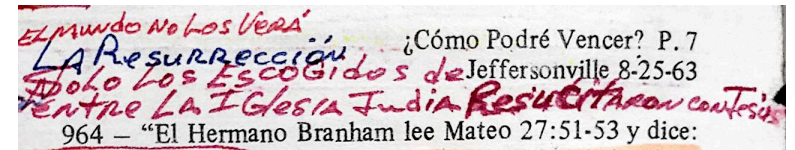 EL MUNDO NO LOS VERÁ
LA RESURRECCIÓN
¿Cómo Podré Vencer? P. 7
SOLO LOS ESCOGIDOS de
Jeffersonville 8-25-63
ENTRE LA IGLESIA JUDIA RESUCITARON CON JESÚS
964 – “El Hermano Branham lee Mateo 27:51-53 y dice: